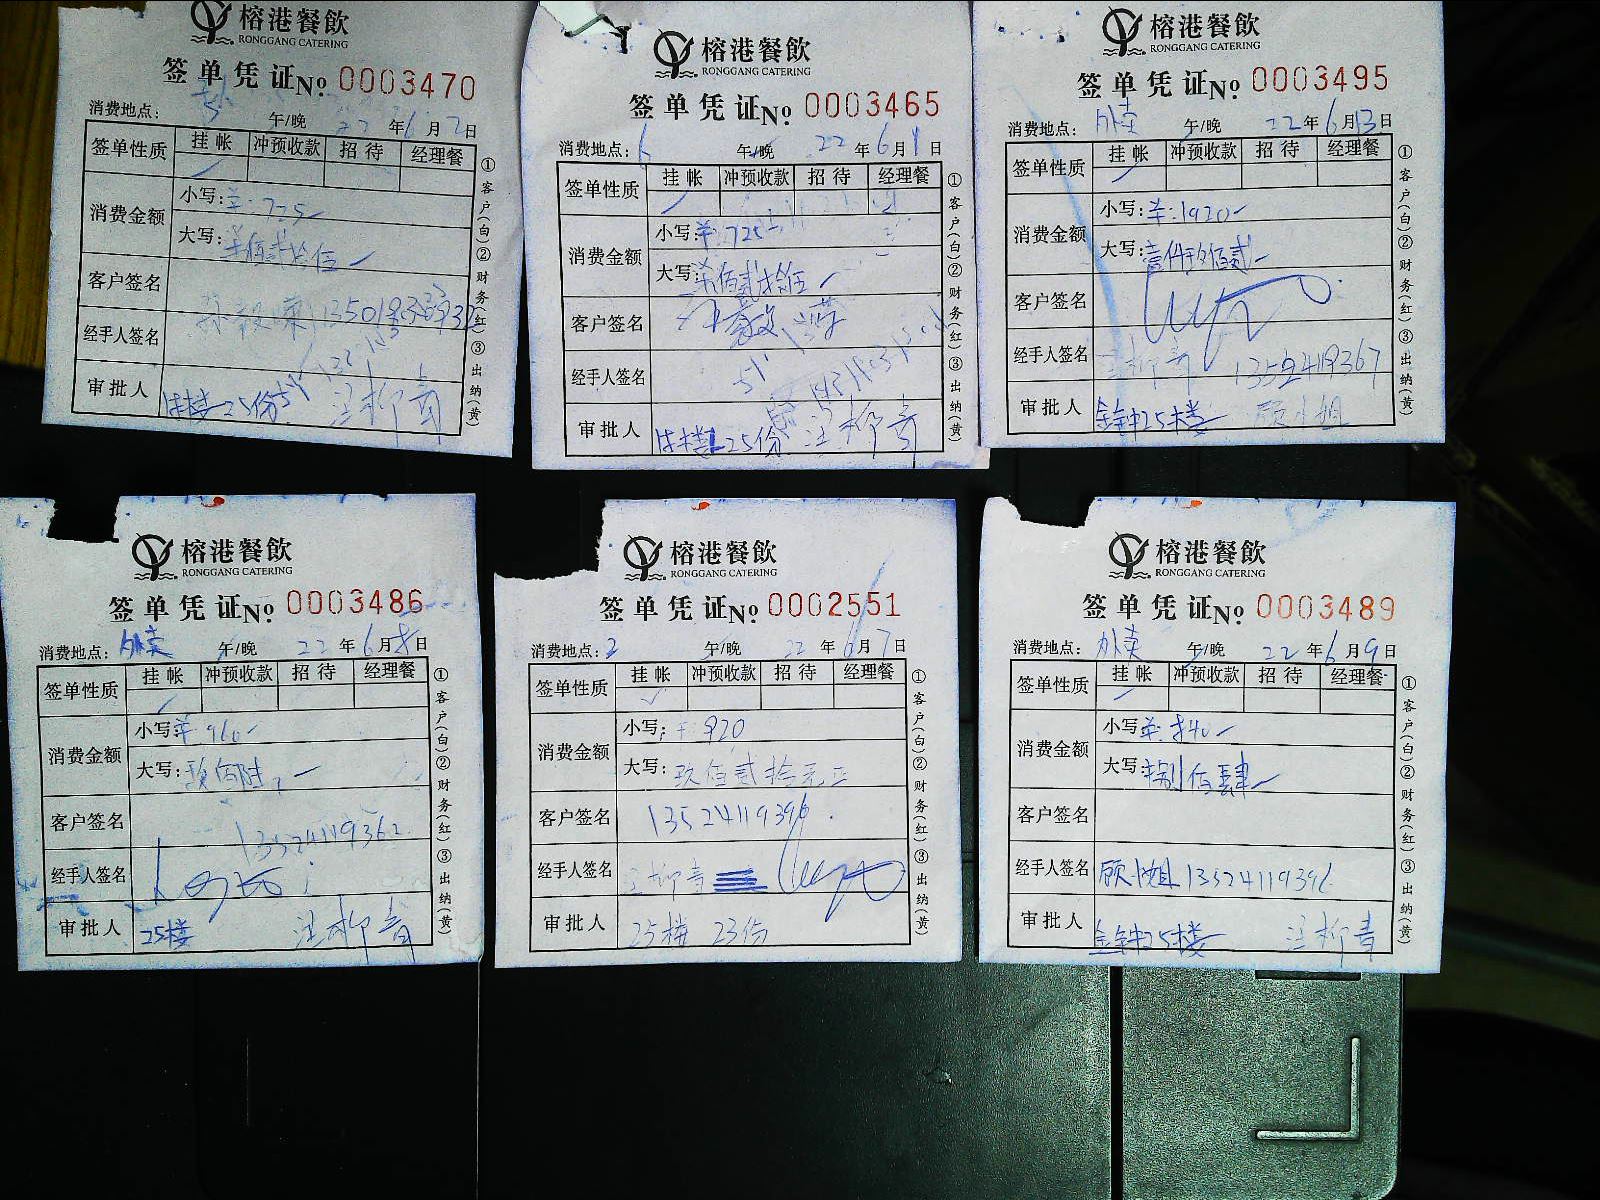 榕港餐飲
RONGGANG CATERING
签单凭证No 0003470
消费地点: 午/晚 22年6月2日
签单性质 挂帐 冲预收款 招待 经理餐
消费金额
小写:羊:725
大写:柒佰贰拾伍
客户签名
经手人签名
审批人 25份 汪柳青
①客户(白)②财务(红)③出纳(黄)
榕港餐飲
RONGGANG CATERING
签单凭证No 0003465
消费地点: 午/晚 22年6月1日
签单性质 挂帐 冲预收款 招待 经理餐
消费金额
小写:羊:725
大写:柒佰贰拾伍
客户签名
经手人签名
审批人 25份 汪柳青
①客户(白)②财务(红)③出纳(黄)
榕港餐飲
RONGGANG CATERING
签单凭证No 0003495
消费地点:外卖 午/晚 22年6月13日
签单性质 挂帐 冲预收款 招待 经理餐
消费金额
小写:羊:1920
大写:壹仟玖佰贰
客户签名
经手人签名 汪柳青
审批人 金钟25楼 顾小姐
①客户(白)②财务(红)③出纳(黄)
榕港餐飲
RONGGANG CATERING
签单凭证No 0003486
消费地点:外卖 午/晚 22年6月8日
签单性质 挂帐 冲预收款 招待 经理餐
消费金额
小写:羊:960
大写:玖佰陆
客户签名 13524119362
经手人签名
审批人 25楼 汪柳青
①客户(白)②财务(红)③出纳(黄)
榕港餐飲
RONGGANG CATERING
签单凭证No 0002551
消费地点:2 午/晚 22年6月7日
签单性质 挂帐 冲预收款 招待 经理餐
消费金额
小写: 920
大写:玖佰贰拾元正
客户签名 13524119396
经手人签名 汪柳青
审批人 25楼 23份
①客户(白)②财务(红)③出纳(黄)
榕港餐飲
RONGGANG CATERING
签单凭证No 0003489
消费地点:外卖 午/晚 22年6月9日
签单性质 挂帐 冲预收款 招待 经理餐
消费金额
小写:羊:840
大写:捌佰肆
客户签名
经手人签名 顾小姐 13524119396
审批人 金钟25楼 汪柳青
①客户(白)②财务(红)③出纳(黄)